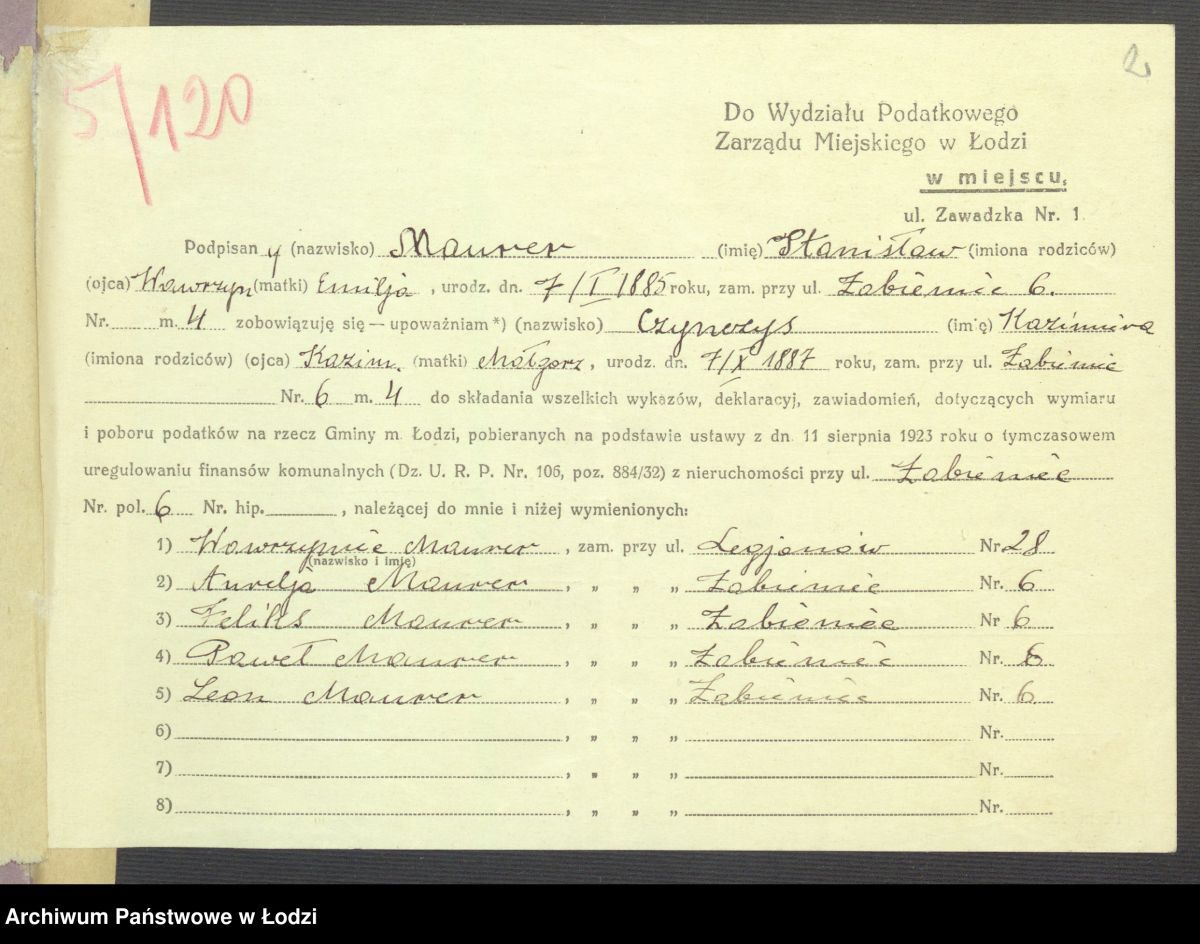 5/120
2
Do Wydziału Podatkowego
Zarządu Miejskiego w Łodzi
w miejscu,
ul. Zawadzka Nr. 1
Podpisan y (nazwisko) Maurer (imię) Stanisław (imiona rodziców)
(ojca) Wawrzyn (matki) Emilja, urodz. dn. 7/I 1885 roku, zam. przy ul. Żabieniec 6.
Nr. m. 4 zobowiązuję się — upoważniam *) (nazwisko) Czynczys (imię) Kazimiera
(imiona rodziców) (ojca) Kazim. (matki) Małgorz, urodz. dn. 7/X 1887 roku, zam. przy ul. Żabieniec
Nr. 6 m. 4 do składania wszelkich wykazów, deklaracyj, zawiadomień, dotyczących wymiaru
i poboru podatków na rzecz Gminy m. Łodzi, pobieranych na podstawie ustawy z dn. 11 sierpnia 1923 roku o tymczasowem
uregulowaniu finansów komunalnych (Dz. U. R. P. Nr. 106, poz. 884/32) z nieruchomości przy ul. Żabieniec
Nr. pol. 6 Nr. hip. , należącej do mnie i niżej wymienionych:
1) Wawrzyniec Maurer, zam. przy ul. Legjonów Nr 28
(nazwisko i imię)
2) Aurelja Maurer, „ „ „ Żabieniec Nr. 6
3) Feliks Maurer, „ „ „ Żabieniec Nr 6
4) Paweł Maurer, „ „ „ Żabieniec Nr. 6
5) Leon Maurer, „ „ „ Żabieniec Nr. 6
6) , „ „ „ Nr.
7) , „ „ „ Nr.
8) , „ „ „ Nr.
Archiwum Państwowe w Łodzi